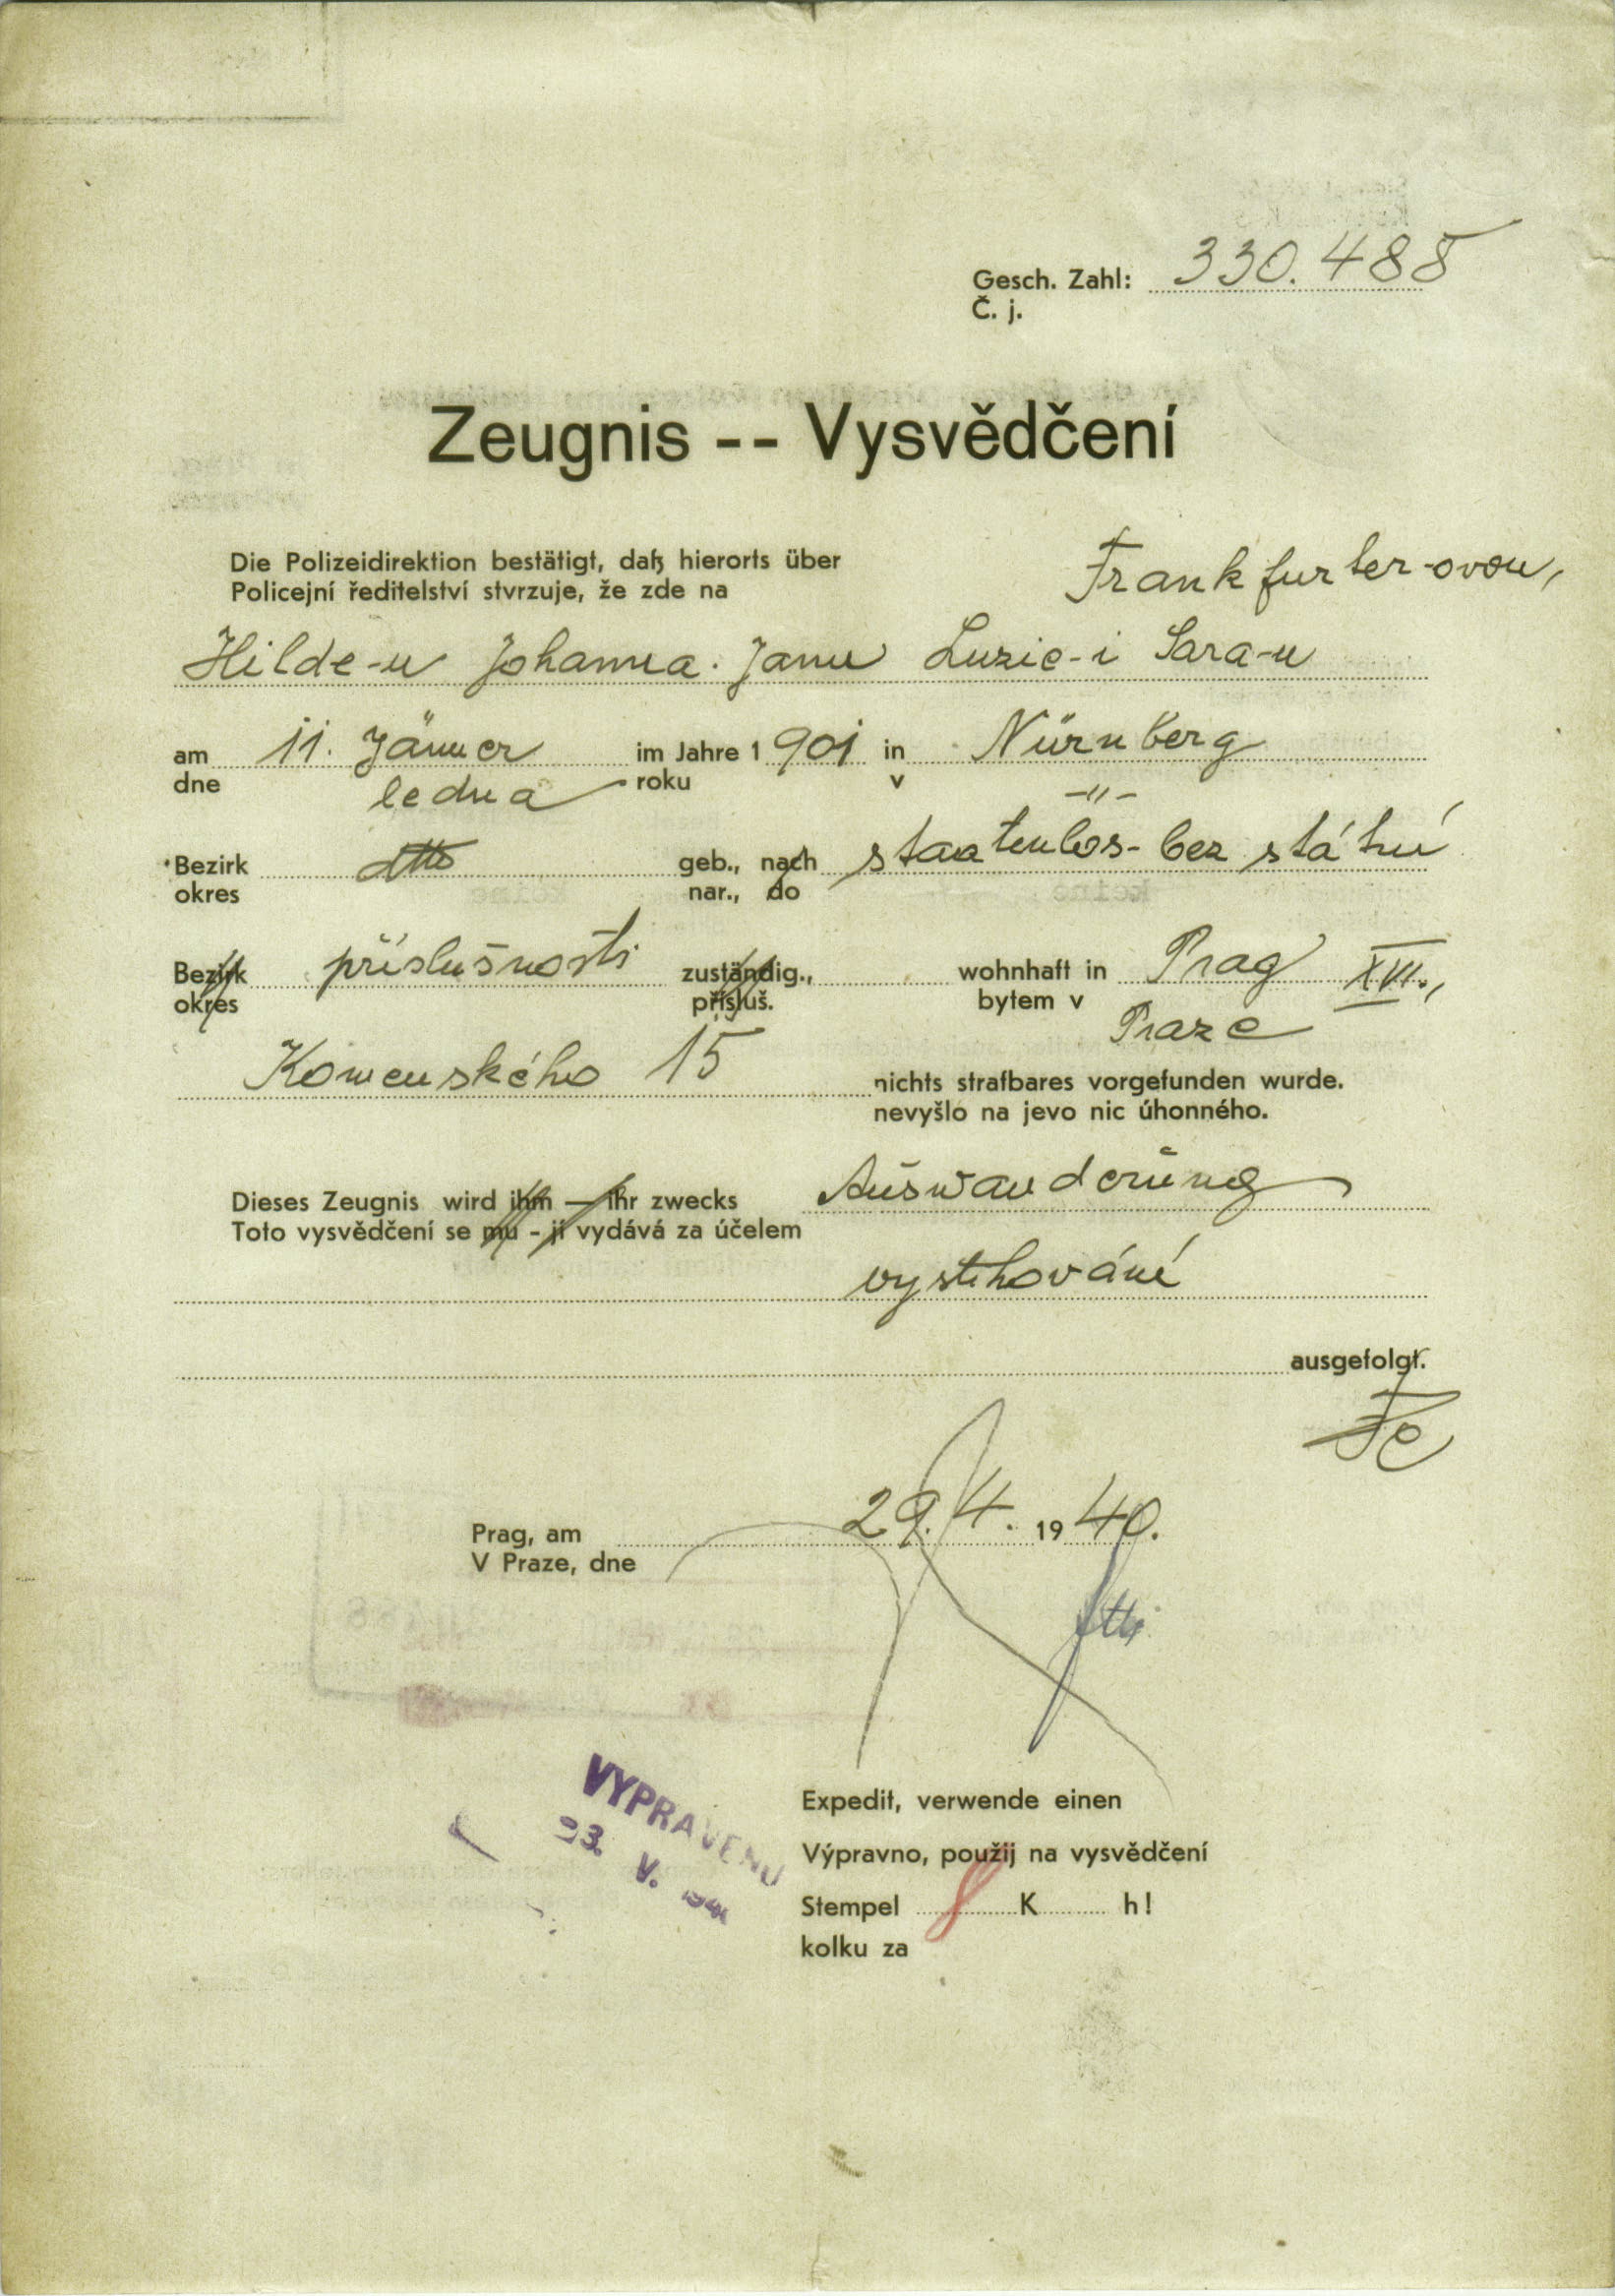 Gesch. Zahl: 330.488
Č. j.
Zeugnis -- Vysvědčení
Die Polizeidirektion bestätigt, daß hierorts über
Policejní ředitelství stvrzuje, že zde na
Frankfurter-ovou,
Hilde-u Johanna. Janu Luzie-i Sara-u
am 11. Jänner im Jahre 1901 in Nürnberg
dne ledna roku v -"-
Bezirk dtto geb., nach staatenlos - bez státní
okres nar., do
Bezirk příslušnosti zuständig., wohnhaft in Prag XVI.,
okres přísluš. bytem v Praze
Komenského 15 nichts strafbares vorgefunden wurde.
nevyšlo na jevo nic úhonného.
Dieses Zeugnis wird ihm — ihr zwecks Auswanderung
Toto vysvědčení se mu - jí vydává za účelem
vystěhování
ausgefolgt.
Prag, am 29. 4. 1940.
V Praze, dne
VYPRAVENO
V.
Expedit, verwende einen
Výpravno, použij na vysvědčení
Stempel 8 K h!
kolku za